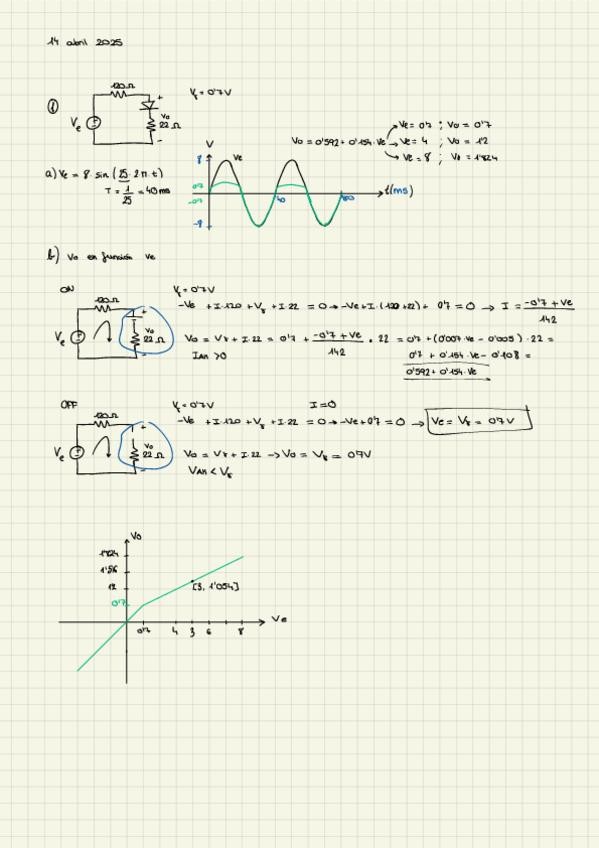 14 abril 2025
① 120 Ω Vγ = 0'7 V
Ve Vo 22 Ω + -
Vo = 0'592 + 0'154·Ve → Ve = 0'7 ; Vo = 0'7
→ Ve = 4 ; Vo = 1'2
→ Ve = 8 ; Vo = 1'824
a) Ve = 8 · sin (25 · 2π · t)
T = 1/25 = 40 ms
V Ve 8 0'7 -0'7 -8 40 80 t(ms)
b) Vo en función Ve
ON Vγ = 0'7 V
120 Ω Ve + Vo 22 Ω -
-Ve + I·120 + Vγ + I·22 = 0 → -Ve + I·(120+22) + 0'7 = 0 → I = (-0'7 + Ve)/142
Vo = Vγ + I·22 = 0'7 + (-0'7 + Ve)/142 · 22 = 0'7 + (0'007·Ve - 0'005) · 22 =
IAK > 0 0'7 + 0'154·Ve - 0'108 =
0'592 + 0'154·Ve
OFF Vγ = 0'7 V I = 0
120 Ω Ve + Vo 22 Ω -
-Ve + I·120 + Vγ + I·22 = 0 → -Ve + 0'7 = 0 → Ve = Vγ = 0'7 V
Vo = Vγ + I·22 → Vo = Vγ = 0'7 V
VAK < Vγ
Vo
1'824
1'56
1'2
0'7
[3, 1'054]
0'7 4 3 6 8 Ve